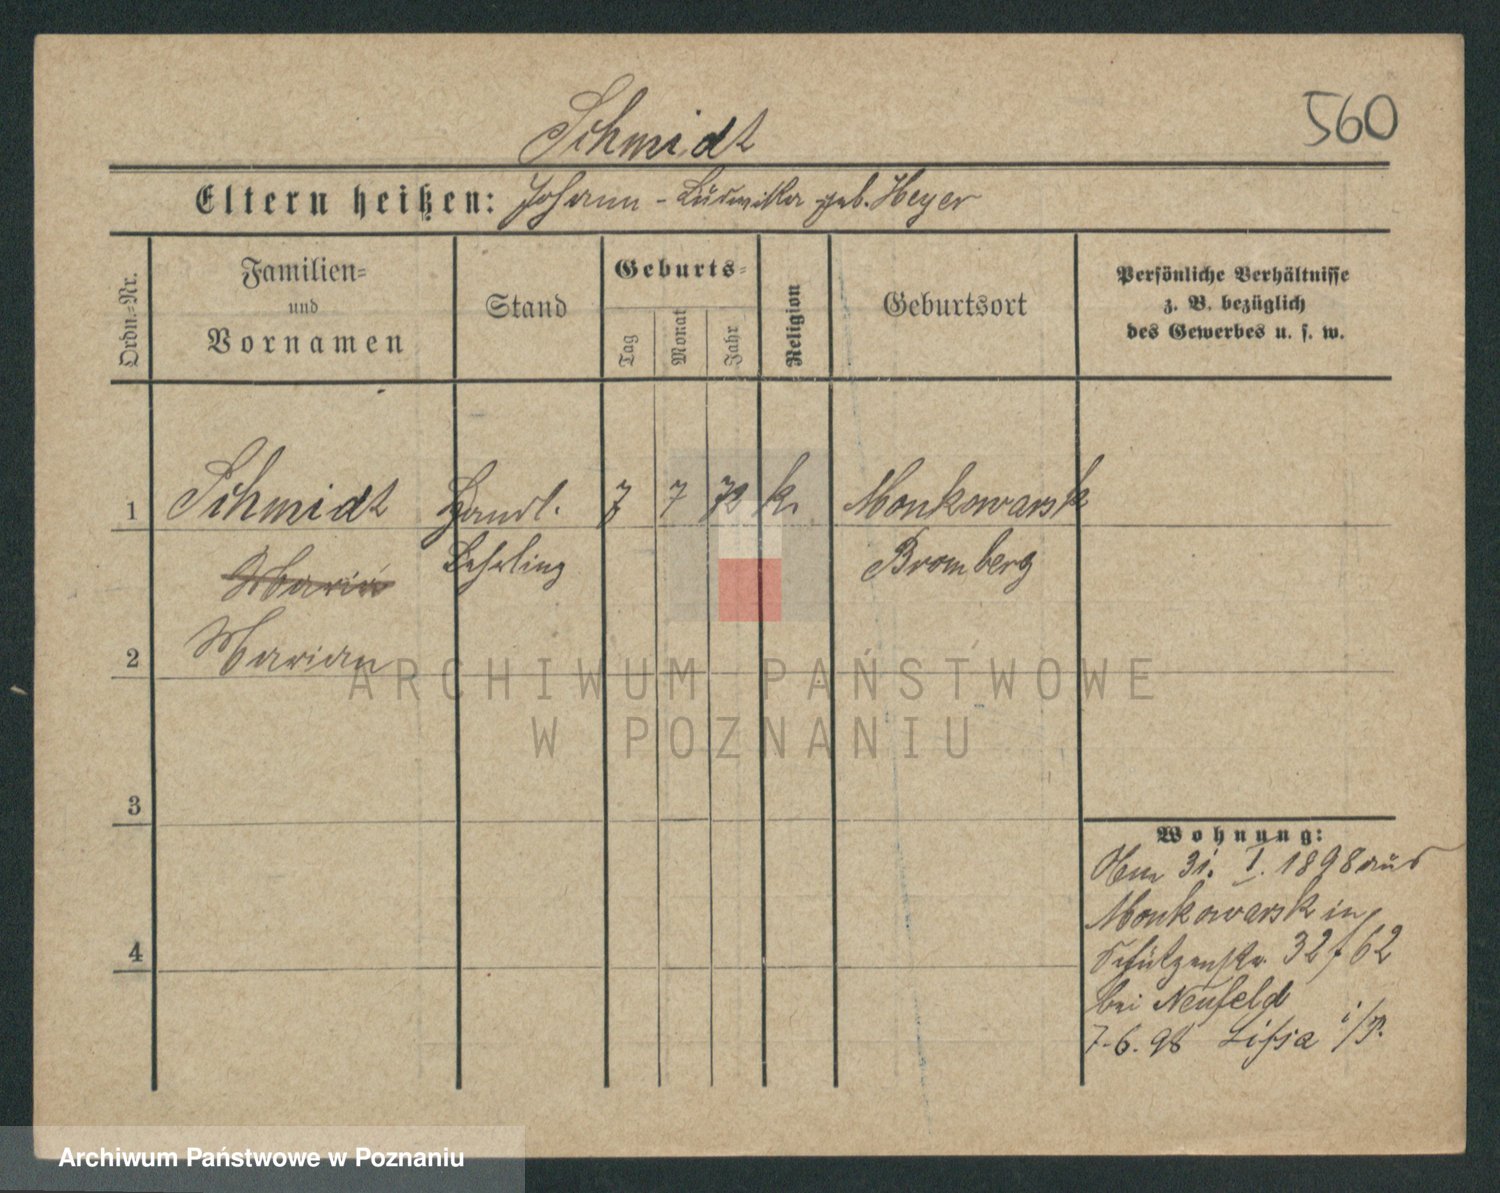 560
Schmidt
Eltern heißen: Johann - Ludwika geb. Heyer
Ordn.-Nr.
Familien-
und
Vornamen
Stand
Geburts-
Tag
Monat
Jahr
Religion
Geburtsort
Persönliche Verhältnisse
z. B. bezüglich
des Gewerbes u. s. w.
1 Schmidt Handl. 7 7 72 k. Monkowarsk
Maria Lehrling Bromberg
2 Marian
3
4
Wohnung:
Am 31. I. 1898 aus
Monkowarsk in
Schützenstr. 32 f 62
bei Neufeld
7.6.98 Lissa i/P.
ARCHIWUM PAŃSTWOWE
W POZNANIU
Archiwum Państwowe w Poznaniu